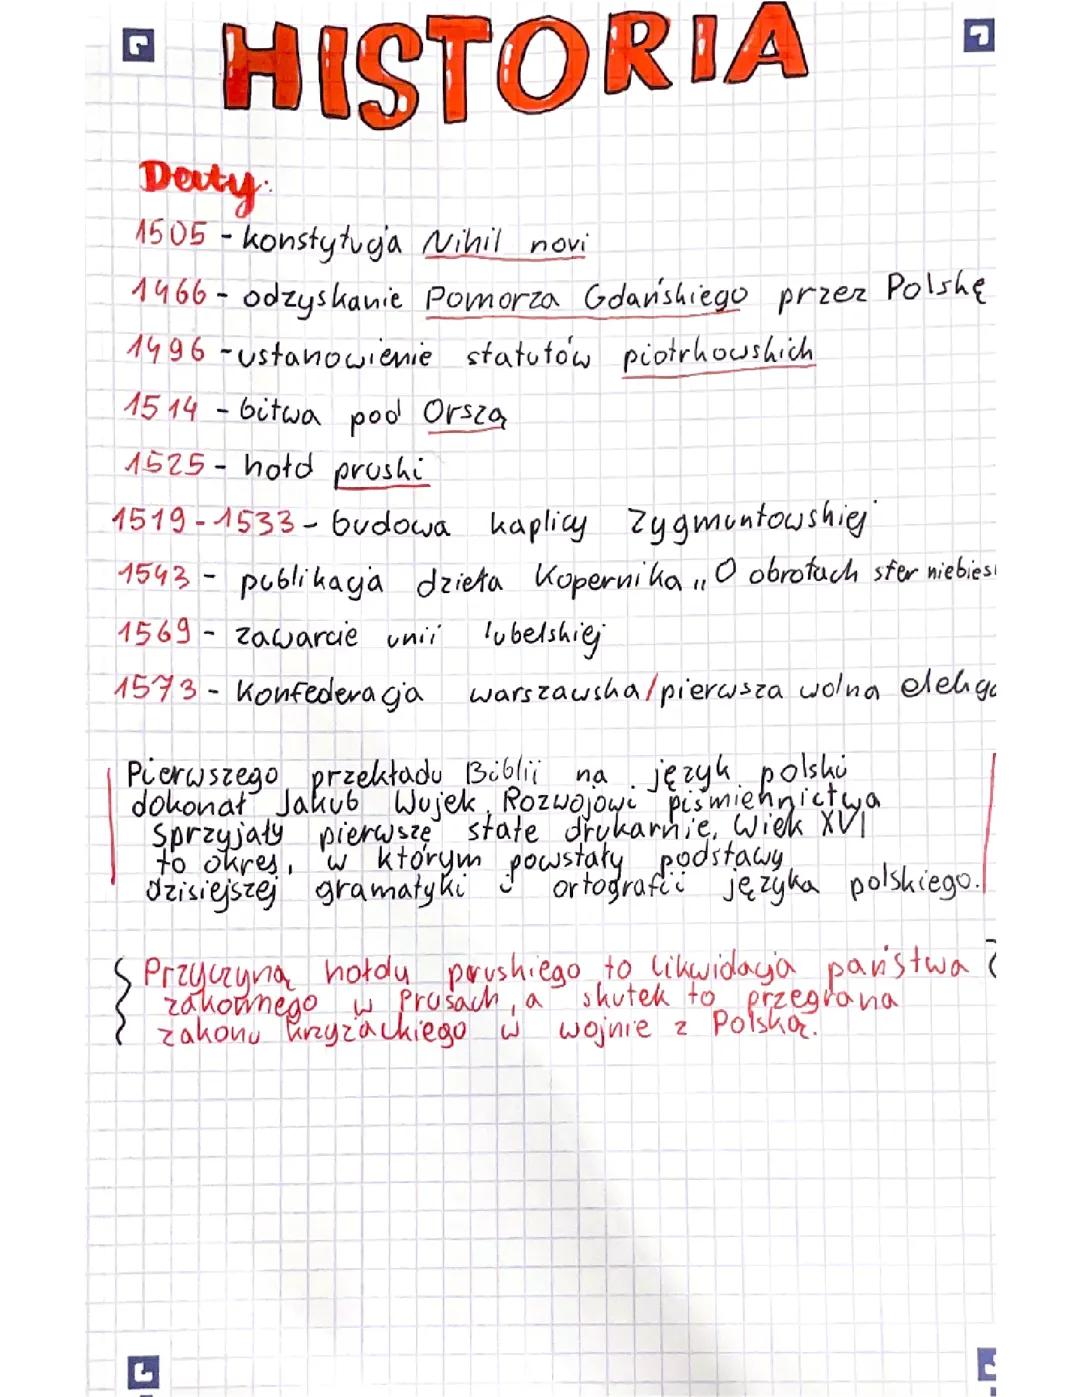 HISTORIA
Daty:
1505 - konstytucja Nihil novi
1466 - odzyskanie Pomorza Gdańskiego przez Polskę
1496 - ustanowienie statutów piotrkowskich
1514 - bitwa pod Orszą
1525 - hołd pruski
1519-1533 - budowa kaplicy Zygmuntowskiej
1543 - publikacja dzieła Kopernika „O obrotach sfer niebies
1569 - zawarcie unii lubelskiej
1573 - Konfederacja warszawska/pierwsza wolna elekcj
Pierwszego przekładu Biblii na język polski
dokonał Jakub Wujek. Rozwojowi piśmiennictwa
Sprzyjały pierwszę stałe drukarnie. Wiek XVI
to okres, w którym powstały podstawy
dzisiejszej gramatyki i ortografii języka polskiego.
Przyczyną hołdu pruskiego to likwidacja państwa
zakonnego w Prusach, a skutek to przegrana
zakonu krzyżackiego w wojnie z Polską.